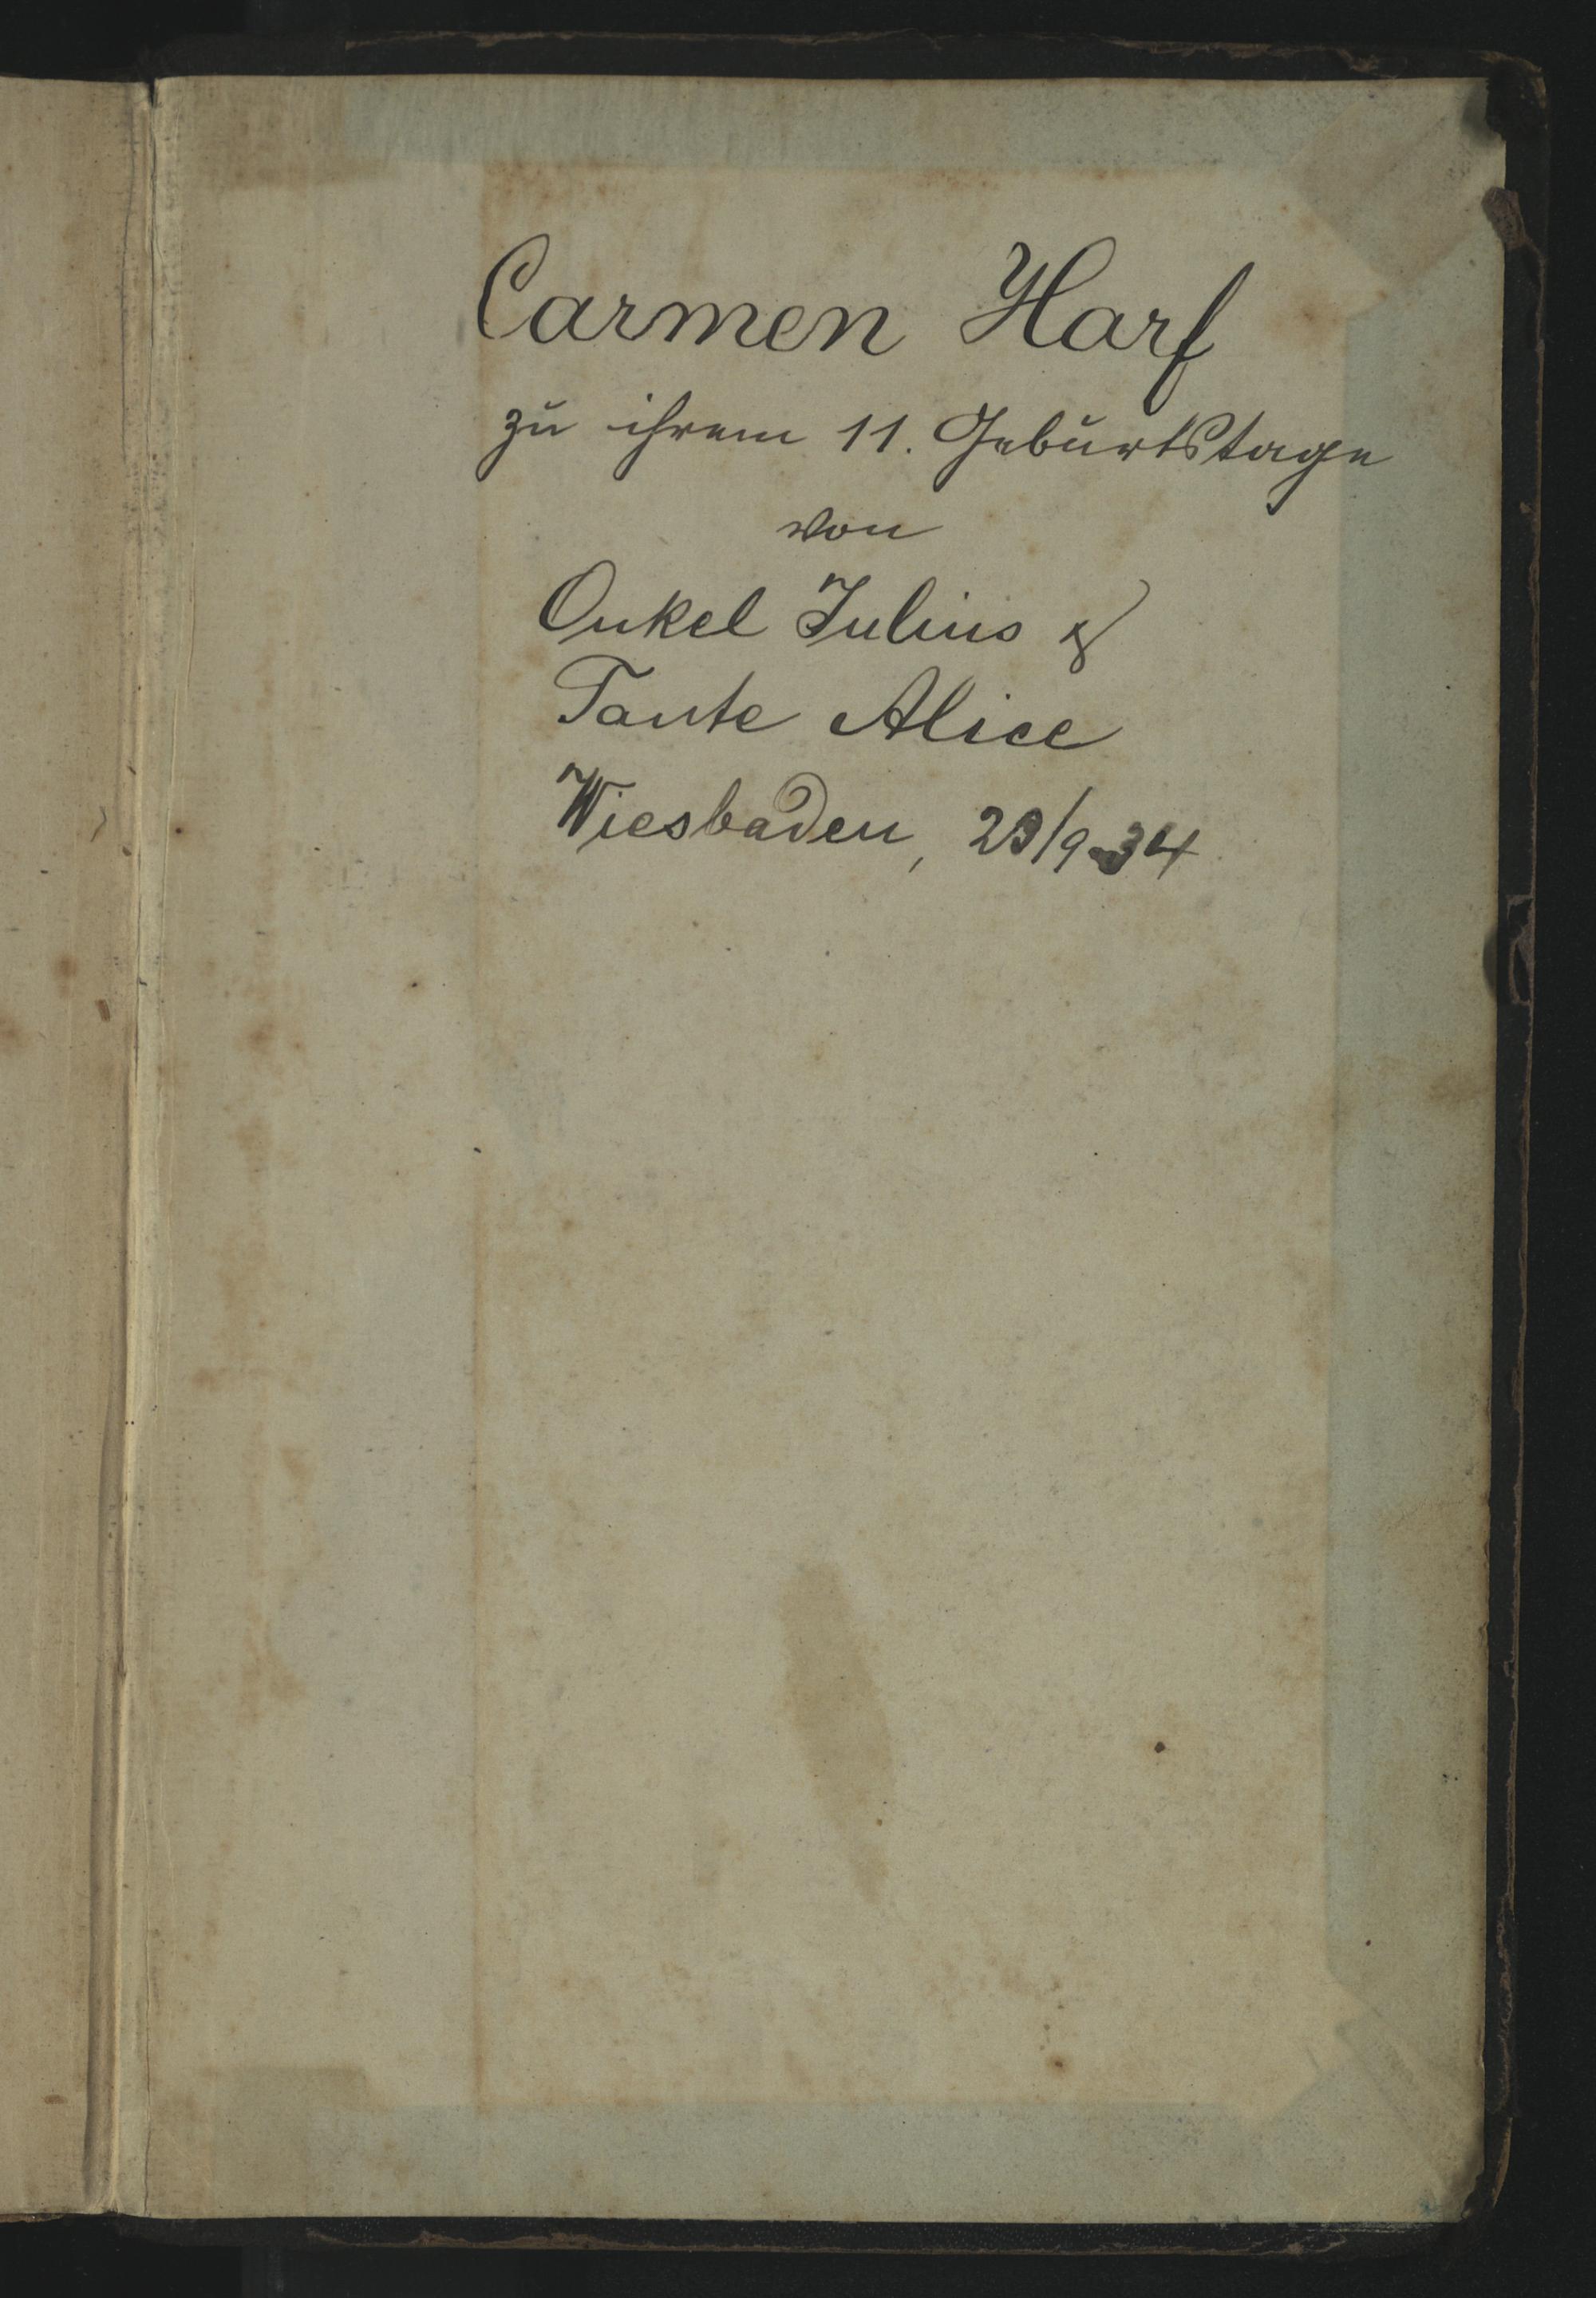 Carmen Harf
zu ihrem 11. Geburtstage
von
Onkel Julius &
Tante Alice
Wiesbaden, 29/9 34